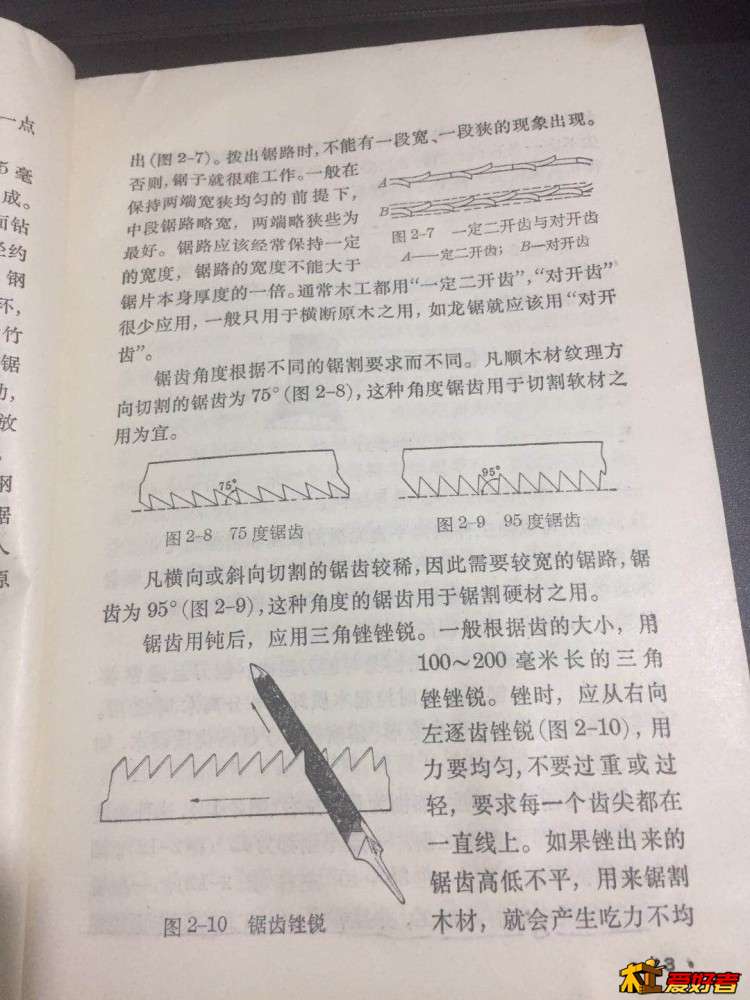 一点
5毫
成。
面钻
径约
钢
环,
竹
锯
力,
放
钢
据
人
原
出(图2-7)。拨出锯路时,不能有一段宽、一段狭的现象出现。
否则,锯子就很难工作。一般在
保持两端宽狭均匀的前提下,
中段锯路略宽,两端略狭些为
最好。锯路应该经常保持一定
的宽度,锯路的宽度不能大于
A
B
图2-7 一定二开齿与对开齿
A—一定二开齿; B—对开齿
锯片本身厚度的一倍。通常木工都用“一定二开齿”,“对开齿”
很少应用,一般只用于横断原木之用,如龙锯就应该用“对开
齿”。
锯齿角度根据不同的锯割要求而不同。凡顺木材纹理方
向切割的锯齿为75°(图2-8),这种角度锯齿用于切割软材之
用为宜。
75°
95°
图2-8 75度锯齿
图2-9 95度锯齿
凡横向或斜向切割的锯齿较稀,因此需要较宽的锯路,锯
齿为95°(图2-9),这种角度的锯齿用于锯割硬材之用。
锯齿用钝后,应用三角锉锉锐。一般根据齿的大小,用
100～200毫米长的三角
锉锉锐。锉时,应从右向
左逐齿锉锐(图2-10),用
力要均匀,不要过重或过
轻,要求每一个齿尖都在
一直线上。如果锉出来的
锯齿高低不平,用来锯割
木材,就会产生吃力不均
图2-10 锯齿锉锐
爱好者